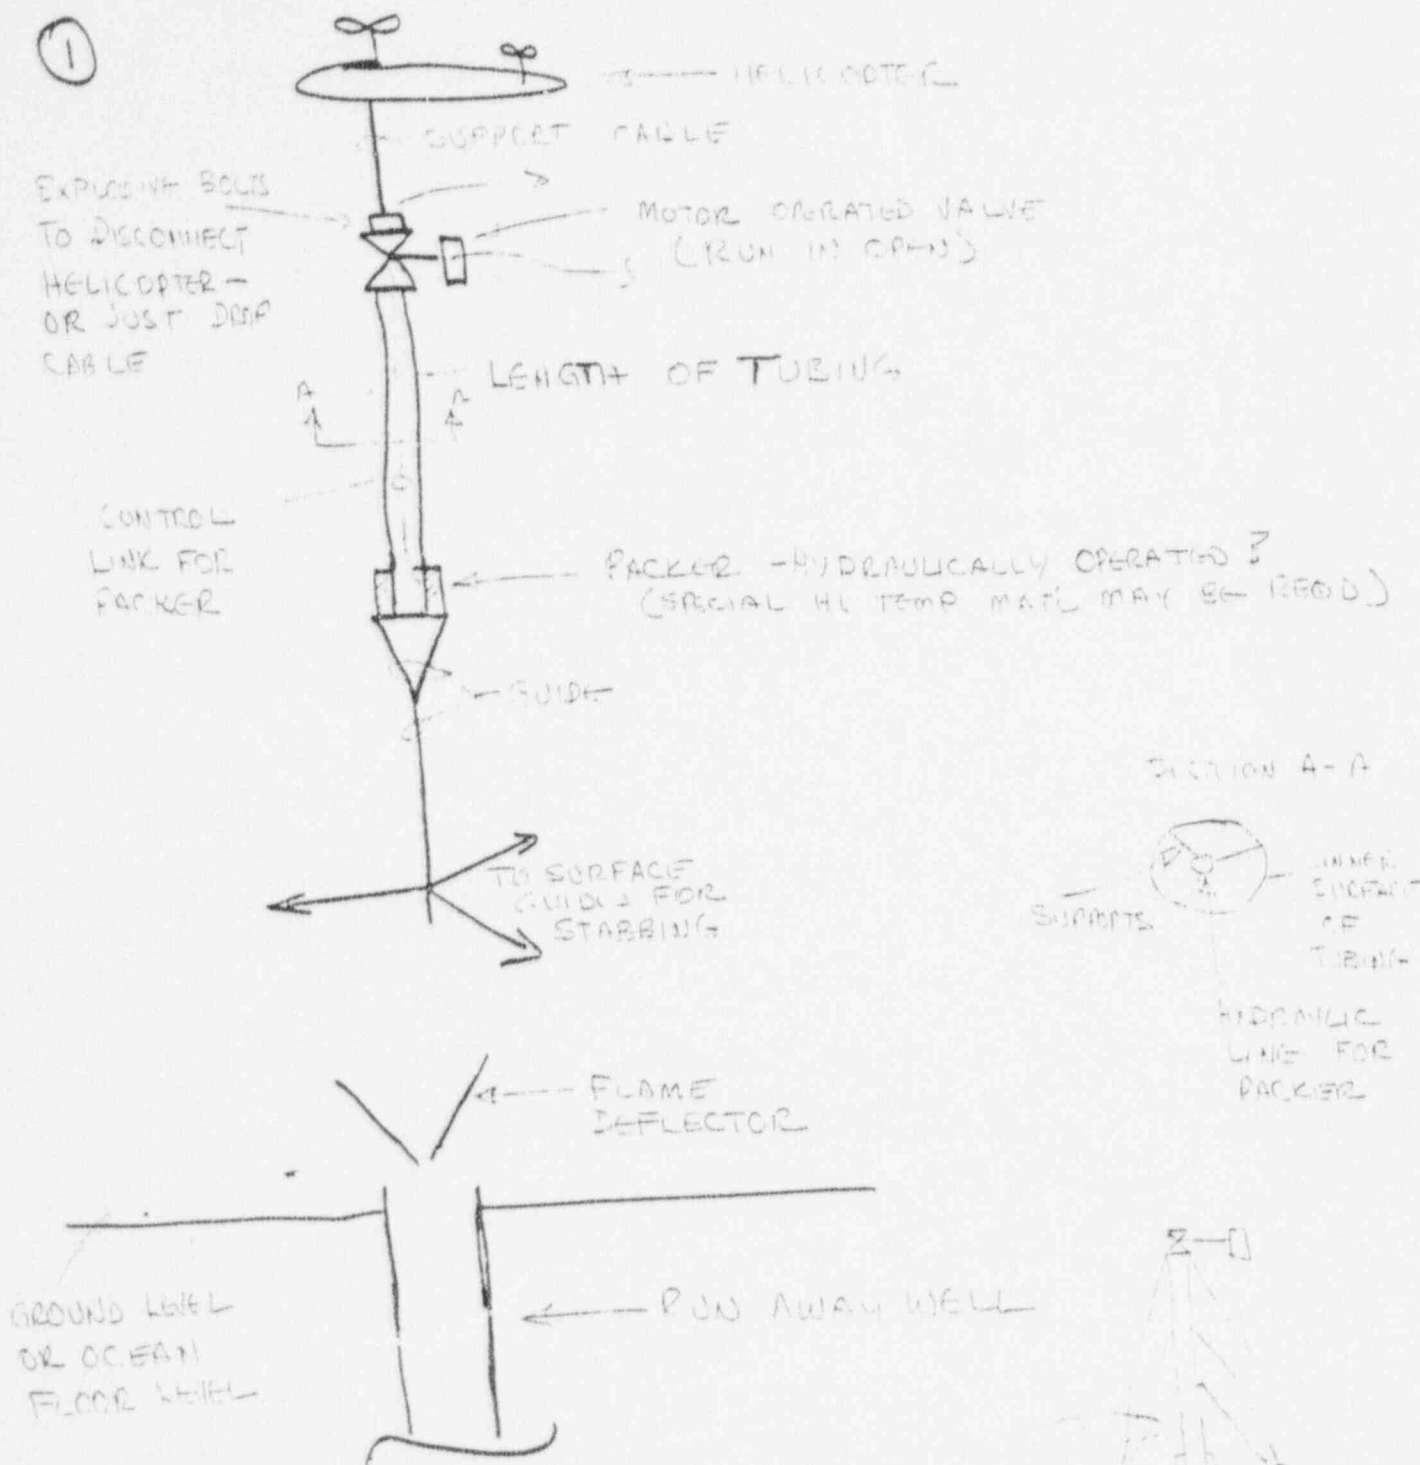 1
HELICOPTER
SUPPORT CABLE
EXPLOSIVE BOLTS
TO DISCONNECT
HELICOPTER -
OR JUST DROP
CABLE
MOTOR OPERATED VALVE
(RUN IN OPEN)
LENGTH OF TUBING
A A
CONTROL
LINK FOR
PACKER
PACKER - HYDRAULICALLY OPERATED?
(SPECIAL HI TEMP MAT'L MAY BE REQD)
GUIDE
SECTION A-A
TO SURFACE
GUIDES FOR
STABBING
SUPPORTS
INNER
SURFACE
OF
TUBING
HYDRAULIC
LINE FOR
PACKER
FLAME
DEFLECTOR
RUN AWAY WELL
GROUND LEVEL
OR OCEAN
FLOOR LEVEL